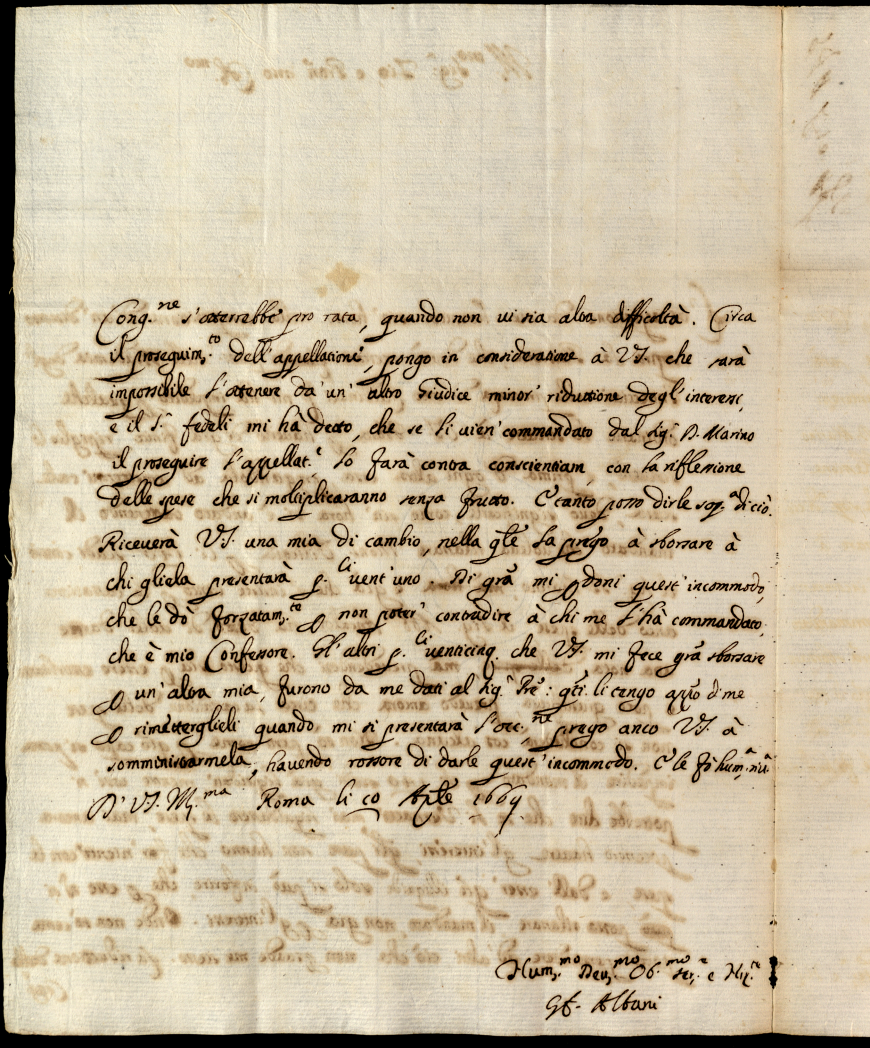 Cong.ne s'otterrebbe pro rata, quando non vi sia altra difficoltà. Circa
il proseguim.to dell'appellatione, pongo in consideratione à VS. che sarà
impossibile l'ottenere da un'altro Giudice minor' riduttione degl'interessi,
e il S.r Fedeli mi hà detto, che se li vien' commandato dal Sig.r D. Marino
il proseguire l'appellat.e lo farà contra conscientiam, con la riflessione
delle spese che si moltiplicaranno senza frutto. E tanto posso dirle sop.a di ciò.
Riceverà VS. una mia di cambio, nella q.le la prego à sborsare à
chi gliela presentarà p.li vent'uno. Di gra mi doni quest'incommodo,
che le dò forzatam.te non poter' contradire à chi me l'hà commandato,
che è mio Confessore. Gl'altri p.li venticinq. che VS. mi fece gra sborsare
un'altra mia, furono da me dati al Sig.r Pre: q.ti li tengo app.o di me
rimetterglieli quando mi si presentarà l'occ.ne prego anco VS. à
somministrarmela, havendo rossore di darle quest'incommodo. E le fò hum.a riu.a
D' VS. M.ma Roma li 10 Aple 1669
Hum.mo Dev.mo Ob.mo ser.e e Nip.te
Albani